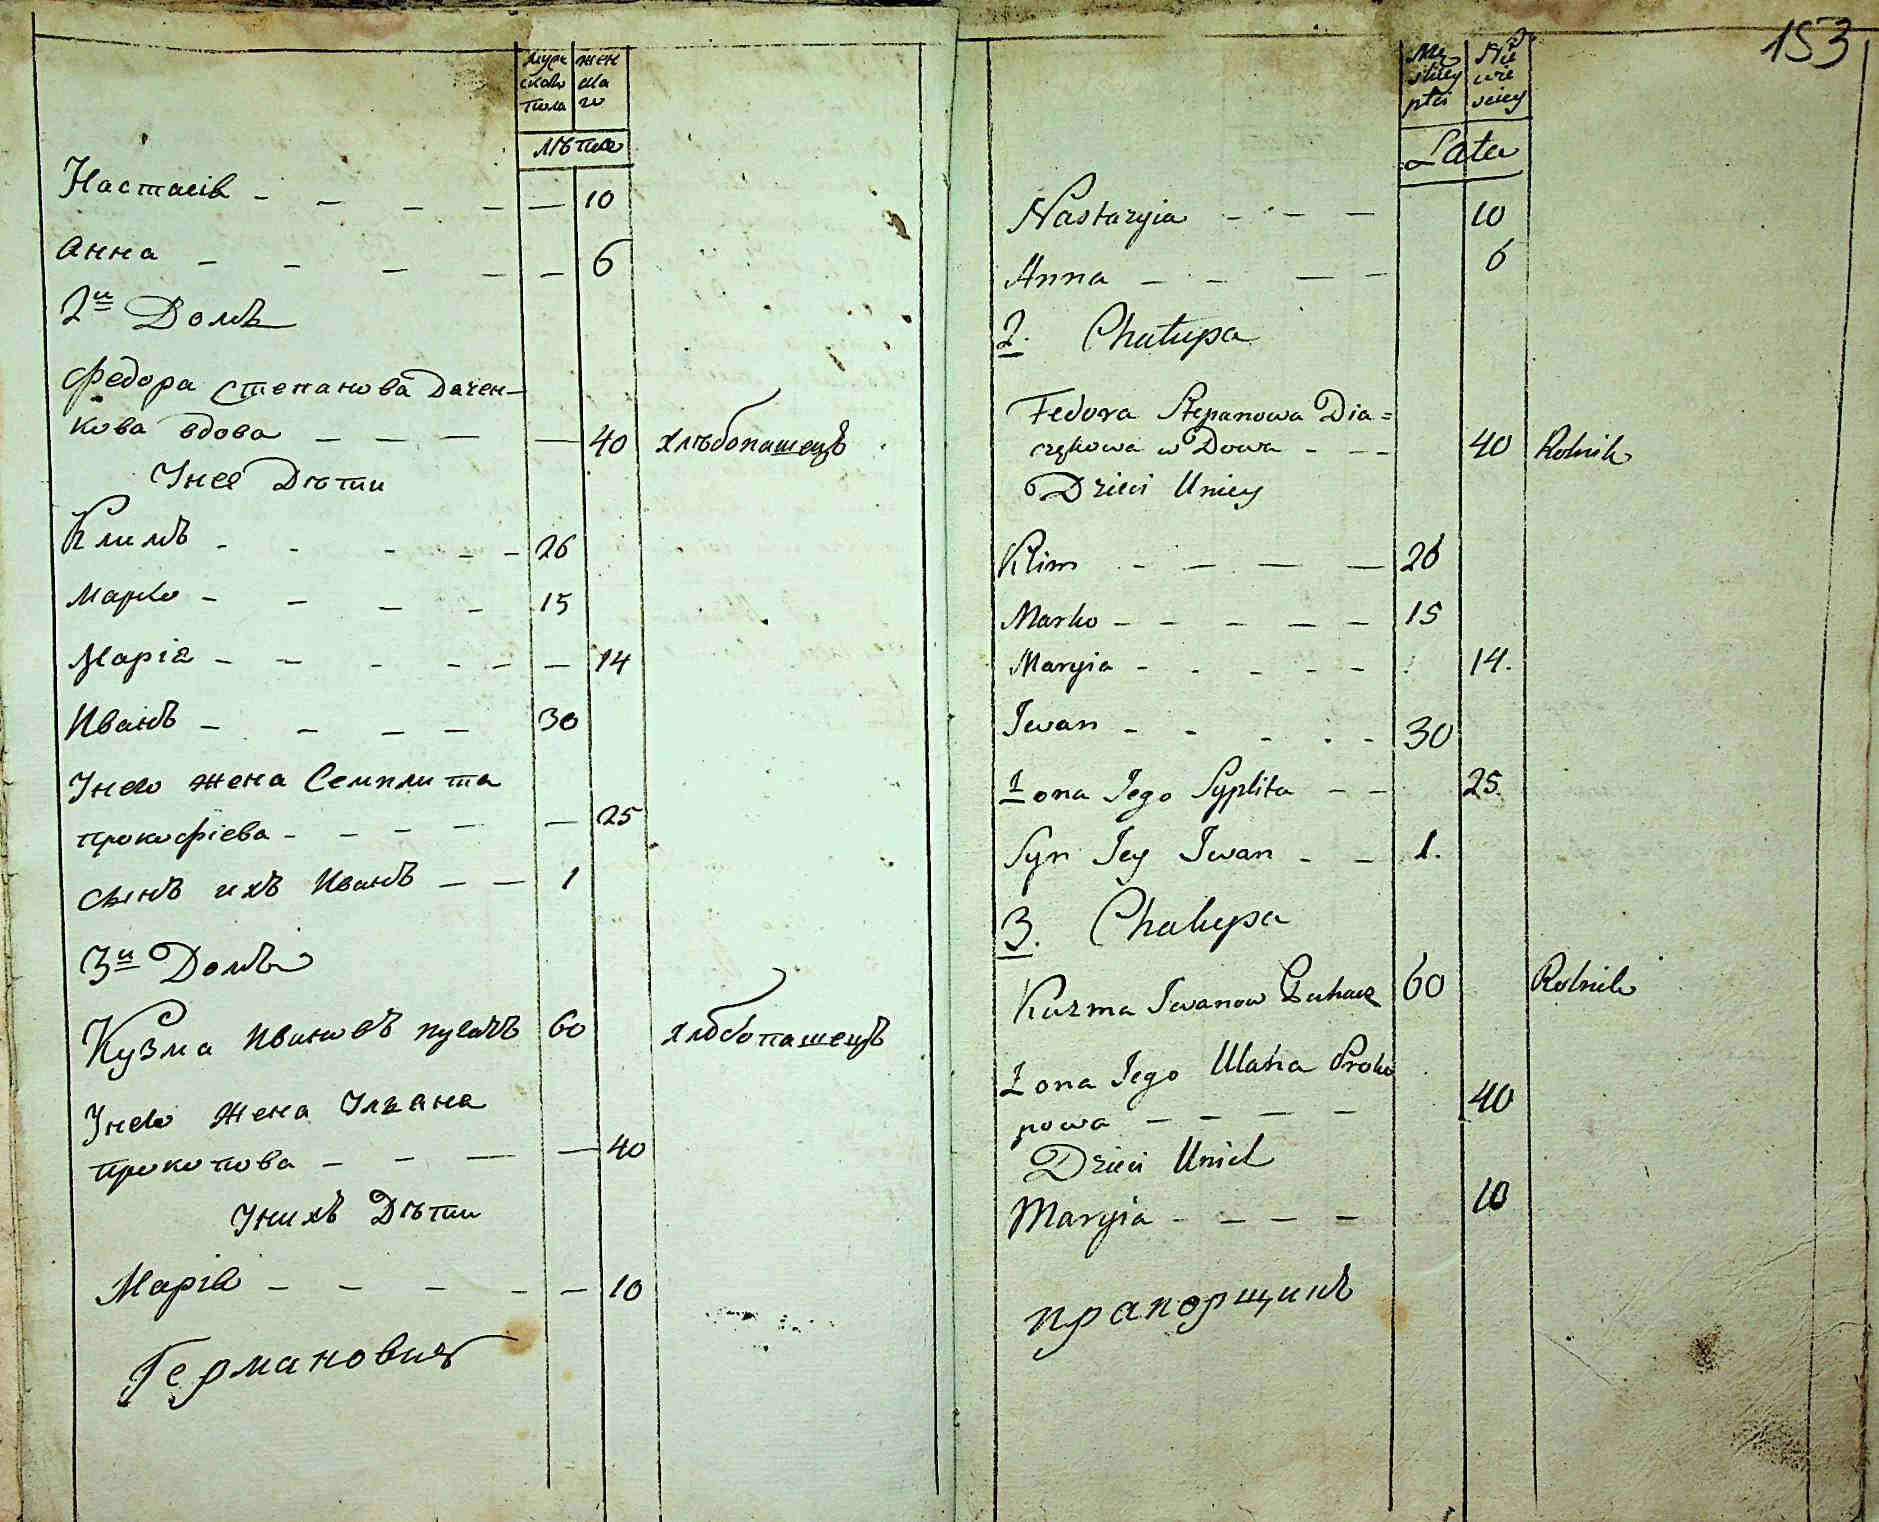 муже жен
скаго ска
пола го
лѣта
Настасія 10
Анна 6
2й Домъ
Федора Степанова Дячен-
кова вдова 40 хлѣбопашецъ
Унее Дѣти
Климъ 26
Марко 15
Марія 14
Иванъ 30
Унего жена Семплита
прокофіева 25
сынъ ихъ Иванъ 1
3й Домъ
Кузма Ивановъ пугачъ 60 хлѣбопашецъ
Унего Жена Ульяна
прокопова 40
Унихъ Дѣти
Марія 10
Германовичъ
153
Lata
Nastazyia 10
Anna 6
2. Chałupa
Fedora Stepanowa Dia=
czękowa wDowa 40 Rolnik
Dzieci Uniey
Klim 26
Marko 15
Maryia 14.
Iwan 30
Żona Iego Syplita 25.
Syn Jey Iwan 1.
3. Chałupa
Kuzma Iwanow Puhacz 60 Rolnik
Żona Iego Ulana Proko
powa 40
Dzieci Unich
Maryia 10
прапорщикъ